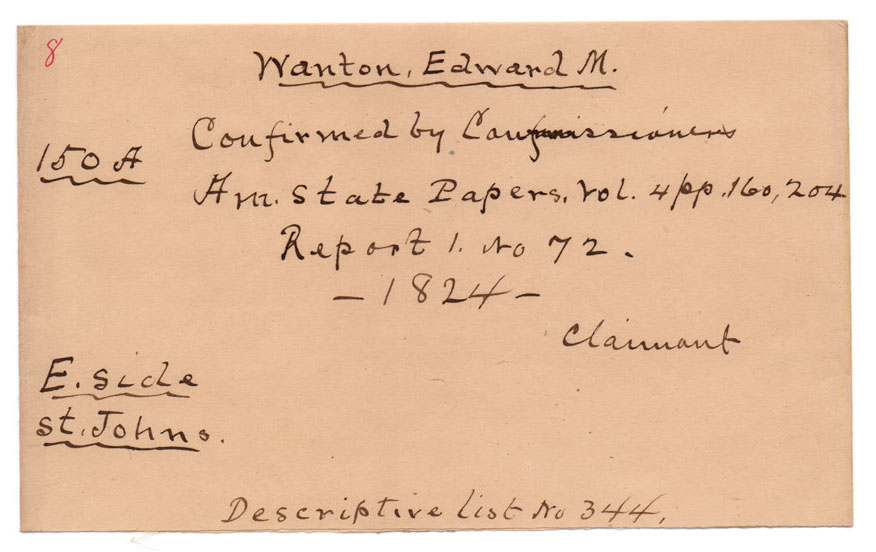 8
Wanton, Edward M.
Confirmed by Commissioners
150 A
Am. State Papers. Vol. 4 pp. 160, 204
Report 1. No 72.
- 1824 -
Claimant
E. Side
St. Johns.
Descriptive list No 344.